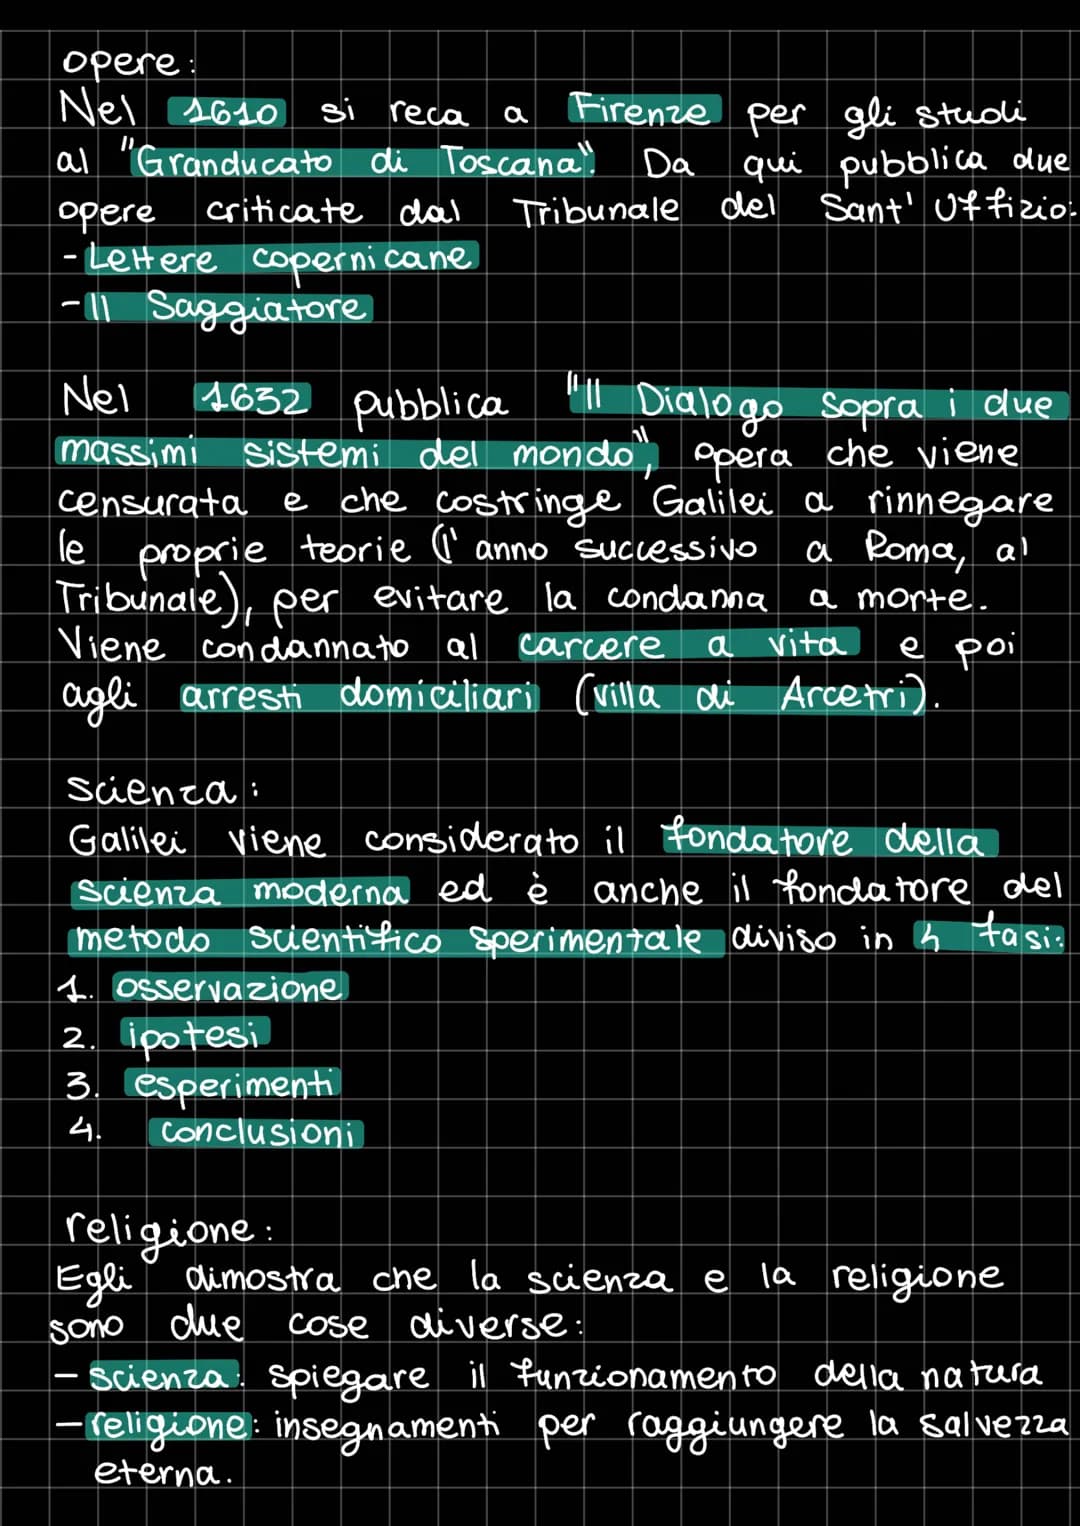 opere:
Nel 1610 si reca a Firenze per gli studi
al "Granducato di Toscana". Da qui pubblica due
opere criticate dal Tribunale del Sant' Uffizio:
- Lettere copernicane
- Il Saggiatore
Nel 1632 pubblica "Il Dialogo sopra i due
massimi sistemi del mondo", opera che viene
censurata e che costringe Galilei a rinnegare
le proprie teorie (l'anno successivo a Roma, al
Tribunale), per evitare la condanna a morte.
Viene condannato al carcere a vita e poi
agli arresti domiciliari (villa di Arcetri).
scienza:
Galilei viene considerato il fondatore della
scienza moderna ed è anche il fondatore del
metodo scientifico sperimentale diviso in 4 fasi:
1. osservazione
2. ipotesi
3. esperimenti
4. conclusioni
religione:
Egli dimostra che la scienza e la religione
sono due cose diverse:
- scienza: spiegare il funzionamento della natura
- religione: insegnamenti per raggiungere la salvezza
eterna.